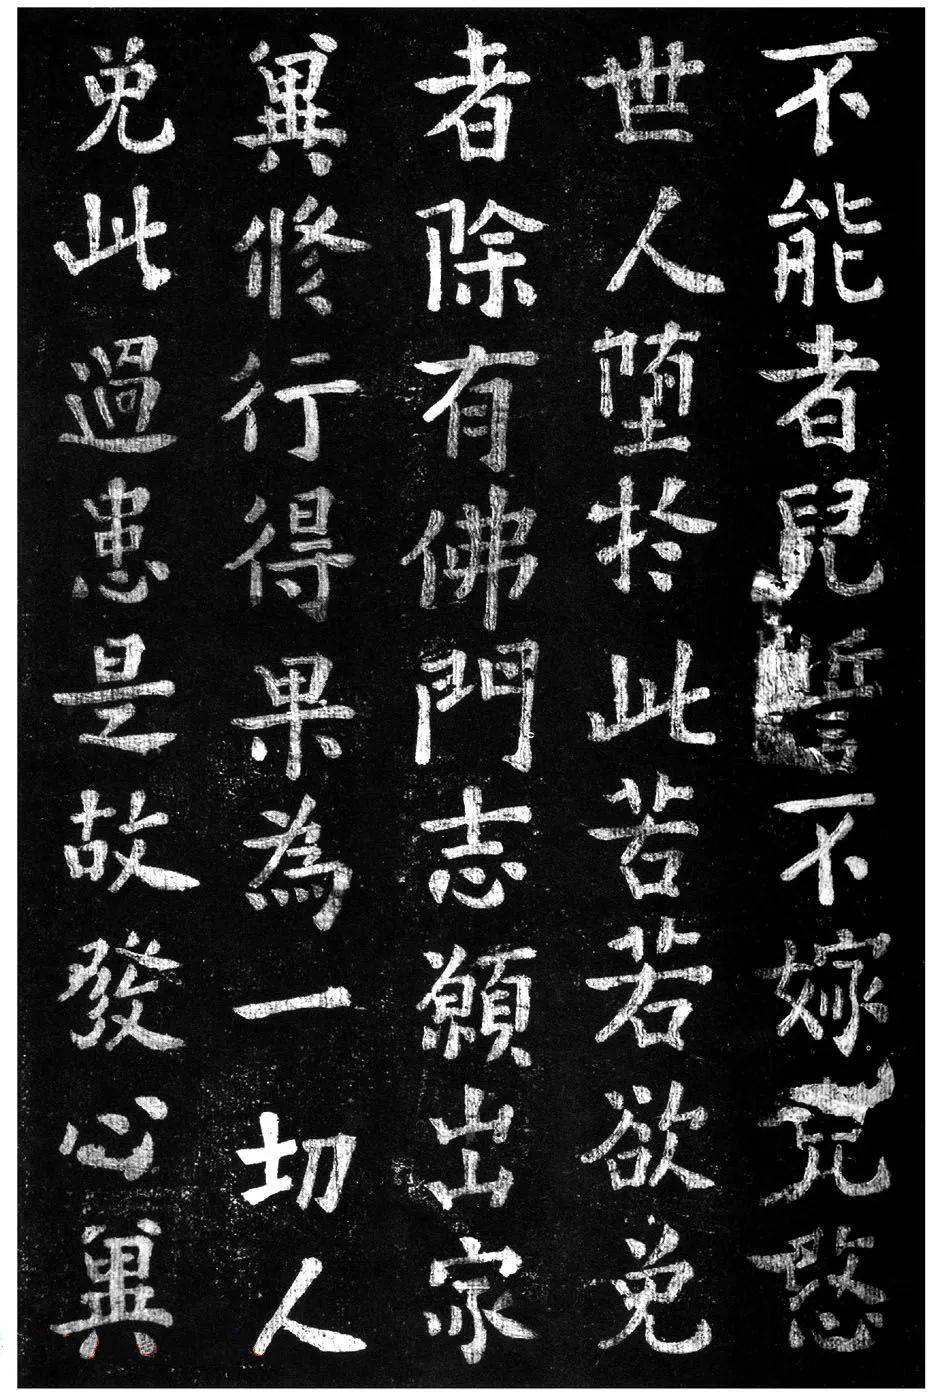 不能者兒誓不嫁兒愍
世人堕於此苦若欲免
者除有佛門志願出家
冀修行得果為一切人
免此過患是故發心冀